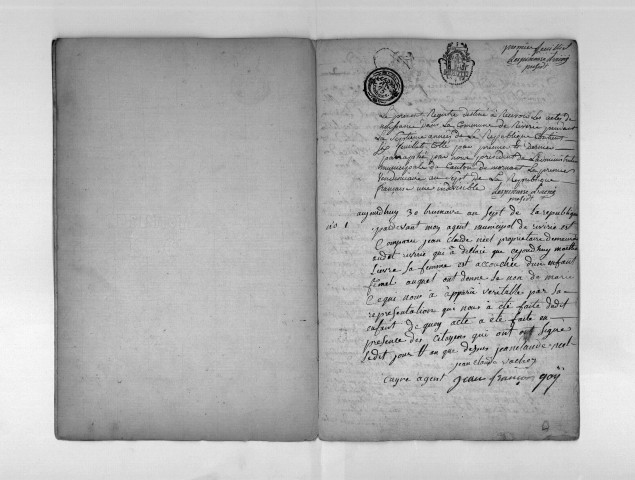 premier feuillet
Le present Registre destiné à Recevoir les actes de
naissance dans la Commune de Riverie pendant
La Septieme année de La Republique Contenant
feuillets Cotté par premier & Dernier
paraphé par nous president de L'administration
municipale du Canton de mornant Le premier
Vendemiaire an Sept de La Republique
françoise une indivisible
president
n.o 1 aujourdhuy 30 brumaire an Sept de la republique
pardevant moy agent municipal de riverie est
Comparu jean Claude néel propriétaire demeurant
audit riverie qui à déclaré que cejourdhuy
Livre Sa femme est accouchée d'un enfant
femel auquel ont donné le nom de marie
Ceque nous à apparû veritable par la
representation que nous à été faite dudit
enfant de quoy acte a été faite en
presence des citoyens qui ont ont Signé
ledit jour & an que dessus jean claude neel
jean claude
agent jean françois goÿ